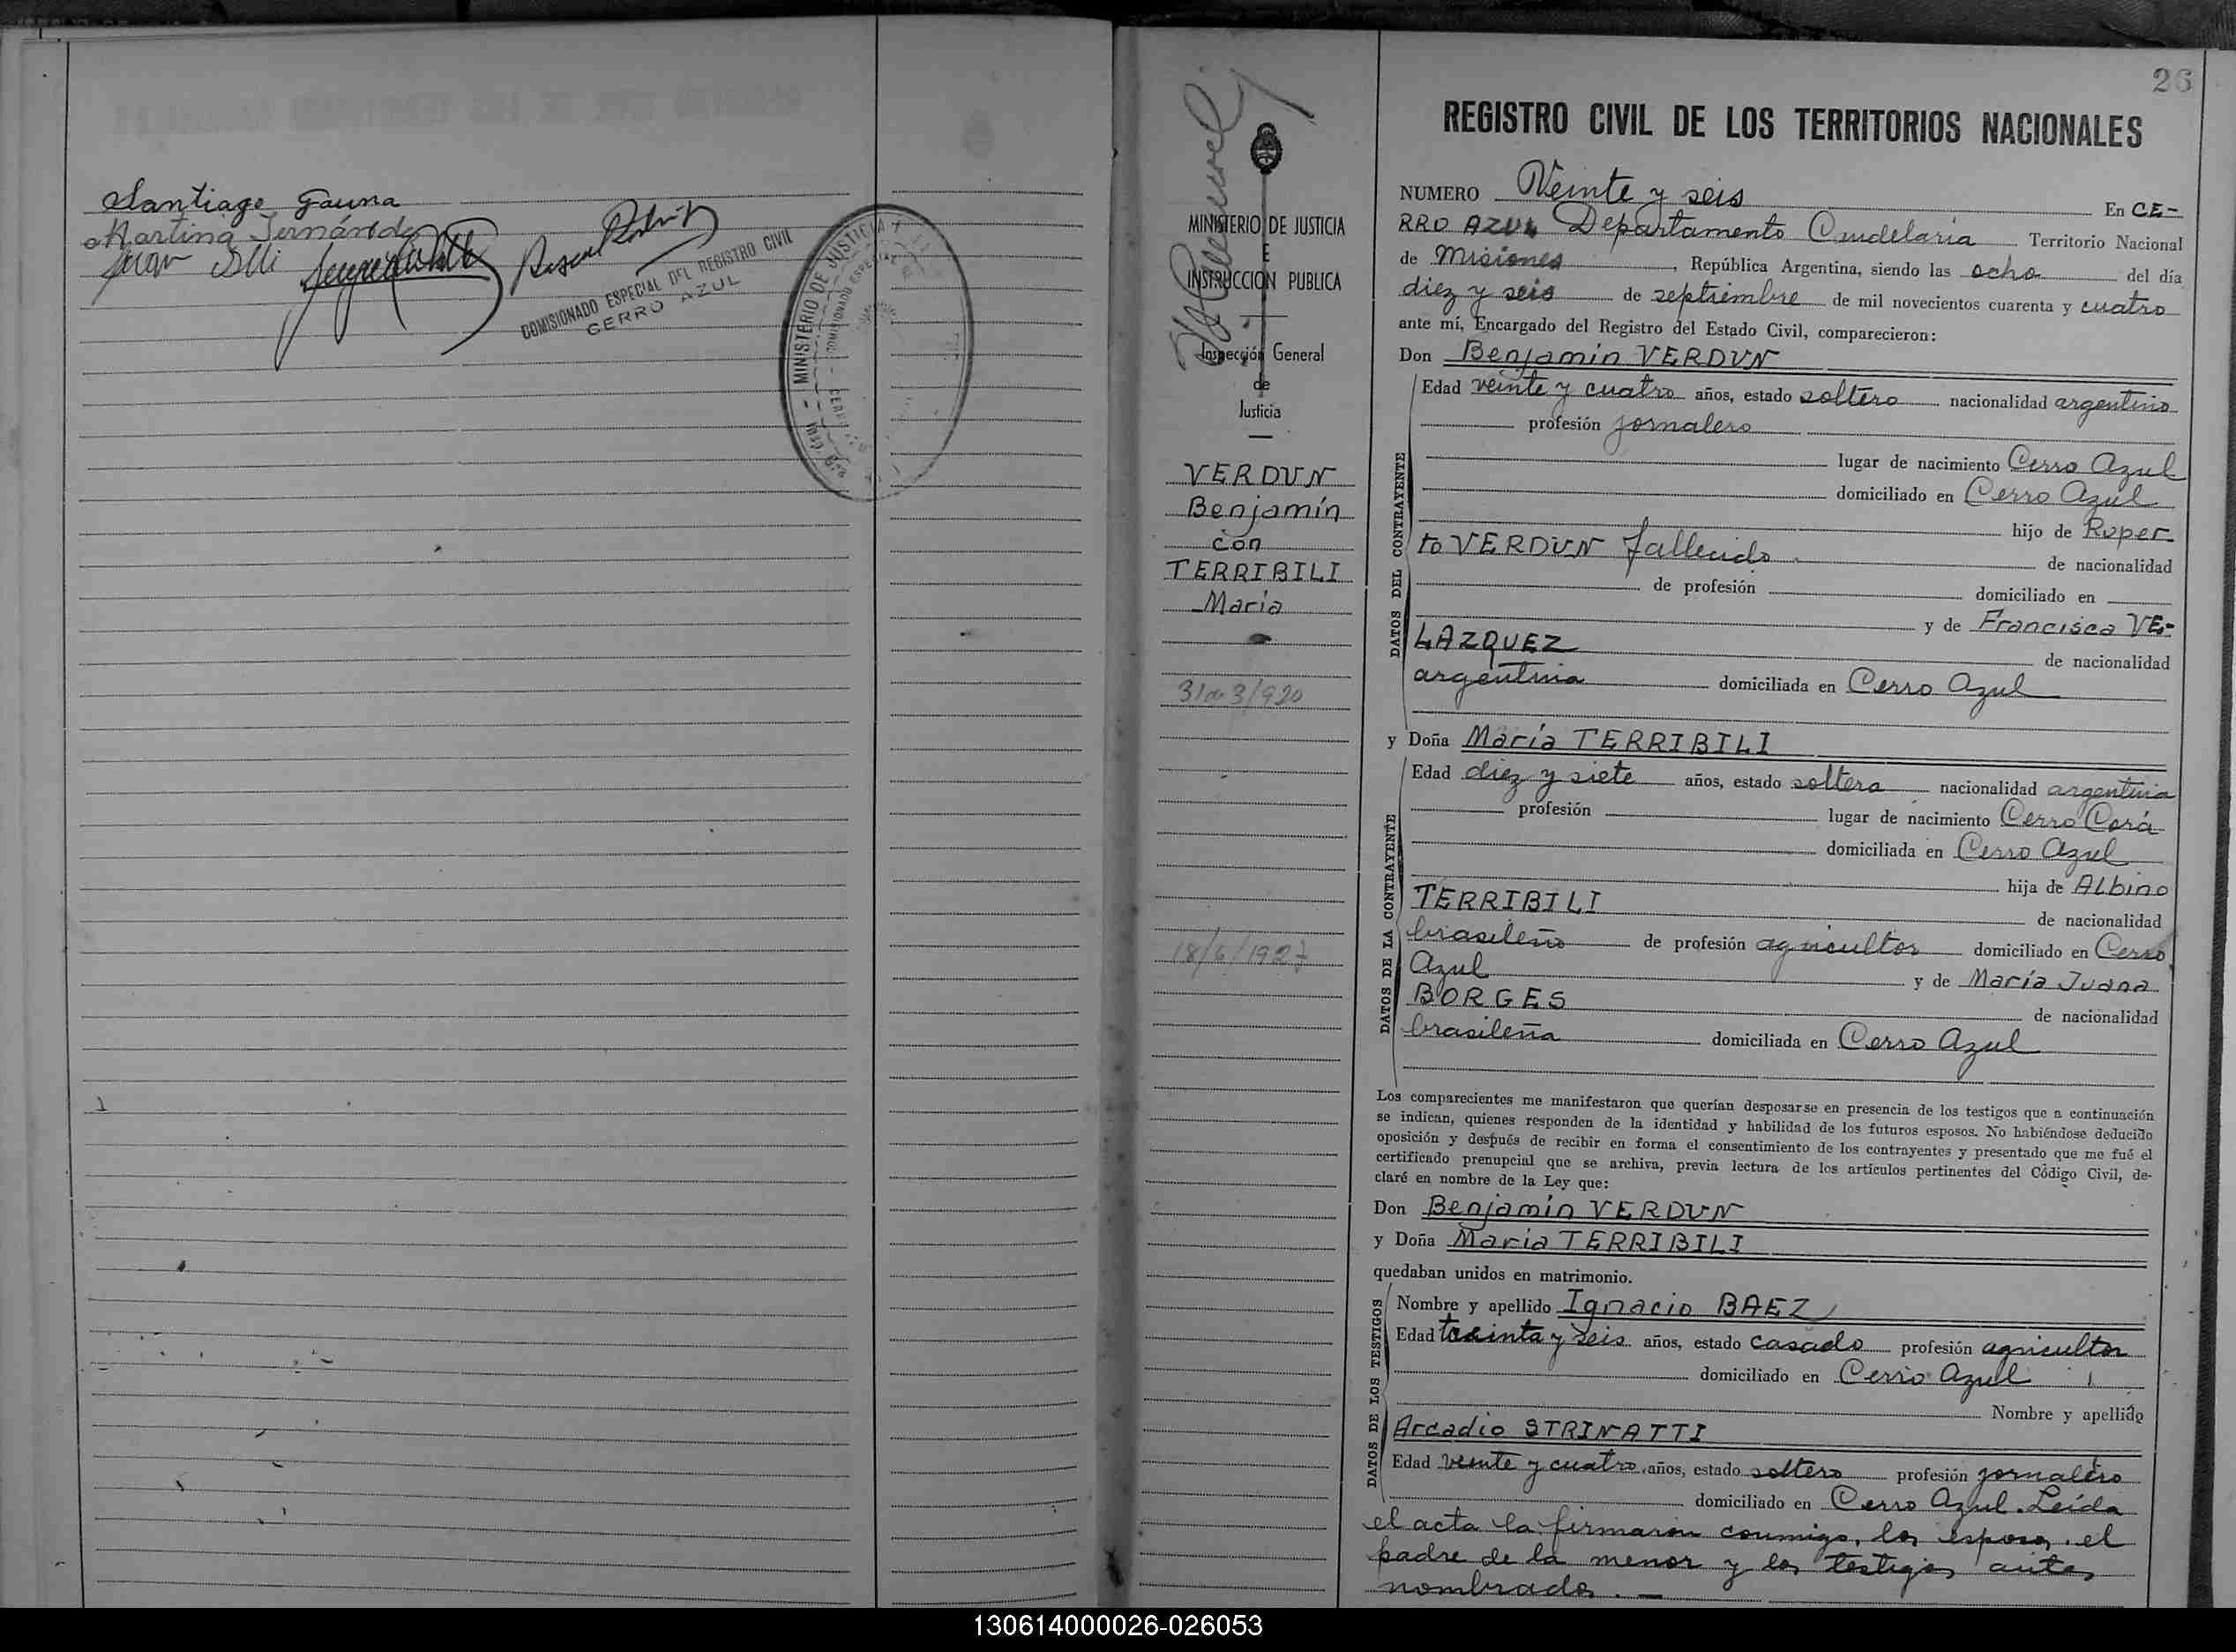 Santiago Gauna
Martina Fernández
Juan
COMISIONADO ESPECIAL DEL REGISTRO CIVIL
CERRO AZUL
MINISTERIO DE JUSTICIA
MINISTERIO DE JUSTICIA
E
INSTRUCCION PUBLICA
Inspección General
de
Justicia
VERDUN
Benjamín
con
TERRIBILI
María
31 de 3/920
18/6/1927
26
REGISTRO CIVIL DE LOS TERRITORIOS NACIONALES
NUMERO Veinte y seis En CE-
RRO AZUL Departamento Candelaria Territorio Nacional
de Misiones, República Argentina, siendo las ocho del día
diez y seis de septiembre de mil novecientos cuarenta y cuatro
ante mí, Encargado del Registro del Estado Civil, comparecieron:
Don Benjamín VERDUN
DATOS DEL CONTRAYENTE
Edad veinte y cuatro años, estado soltero nacionalidad argentino
profesión jornalero
lugar de nacimiento Cerro Azul
domiciliado en Cerro Azul
hijo de Ruper-
to VERDUN fallecido
de nacionalidad
de profesión domiciliado en
y de Francisca VE-
LAZQUEZ
de nacionalidad
argentina domiciliada en Cerro Azul
y Doña María TERRIBILI
DATOS DE LA CONTRAYENTE
Edad diez y siete años, estado soltera nacionalidad argentina
profesión lugar de nacimiento Cerro Corá
domiciliada en Cerro Azul
hija de Albino
TERRIBILI
de nacionalidad
brasileño de profesión agricultor domiciliado en Cerro
Azul y de María Juana
BORGES
de nacionalidad
brasileña domiciliada en Cerro Azul
Los comparecientes me manifestaron que querían desposarse en presencia de los testigos que a continuación
se indican, quienes responden de la identidad y habilidad de los futuros esposos. No habiéndose deducido
oposición y después de recibir en forma el consentimiento de los contrayentes y presentado que me fué el
certificado prenupcial que se archiva, previa lectura de los artículos pertinentes del Código Civil, de-
claré en nombre de la Ley que:
Don Benjamín VERDUN
y Doña María TERRIBILI
quedaban unidos en matrimonio.
DATOS DE LOS TESTIGOS
Nombre y apellido Ignacio BAEZ
Edad treinta y seis años, estado casado profesión agricultor
domiciliado en Cerro Azul
Nombre y apellido
Arcadio STRINATTI
Edad veinte y cuatro años, estado soltero profesión jornalero
domiciliado en Cerro Azul. Leída
el acta la firmaron conmigo, los esposos, el
padre de la menor y los testigos antes
nombrados.—
130614000026-026053